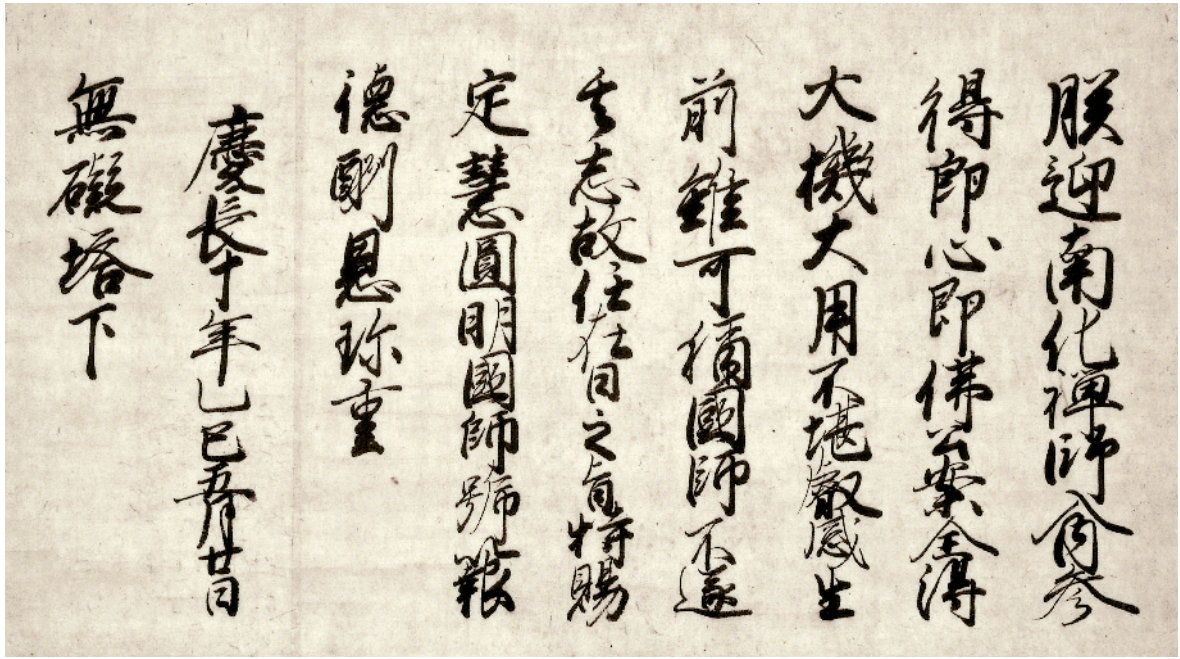 朕迎南化禅師入内参
得即心即佛公案全得
大機大用不堪叡感生
前雖可國師不遂
其志故任在日之旨特賜
定慧圓明國師號報
德酬恩珍重
慶長十年乙巳五月廿日
無礙塔下